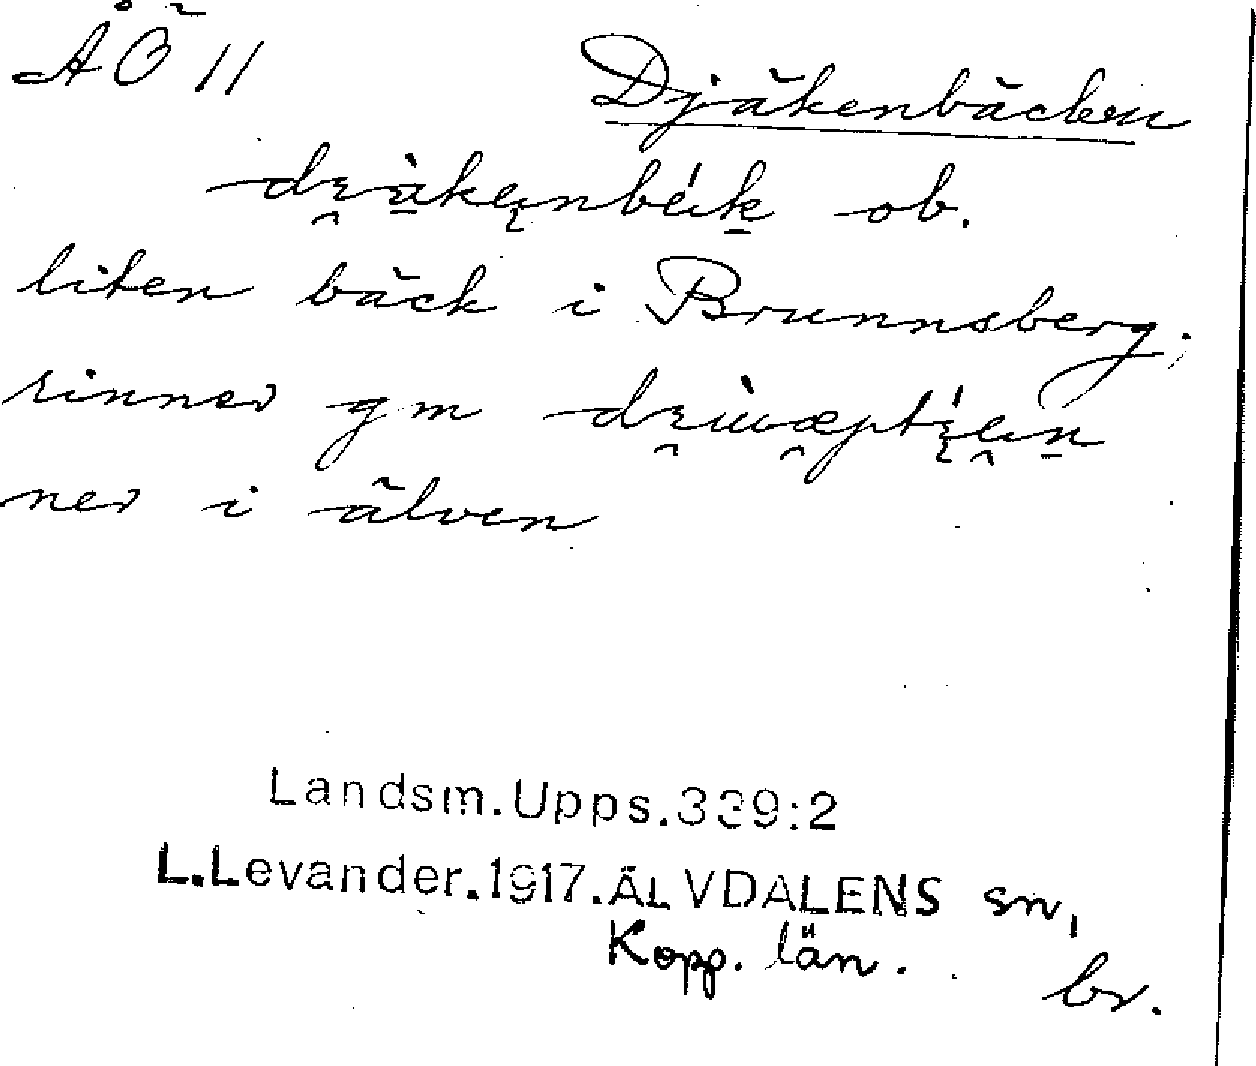 ÅÖ 11
Djäkenbäcken
ob.
liten bäck i Brunnsberg;
rinner gm
ner i älven
Landsm.Upps.339:2
L.Levander.1917.ÄLVDALENS sn,
Kopp. län.
br.